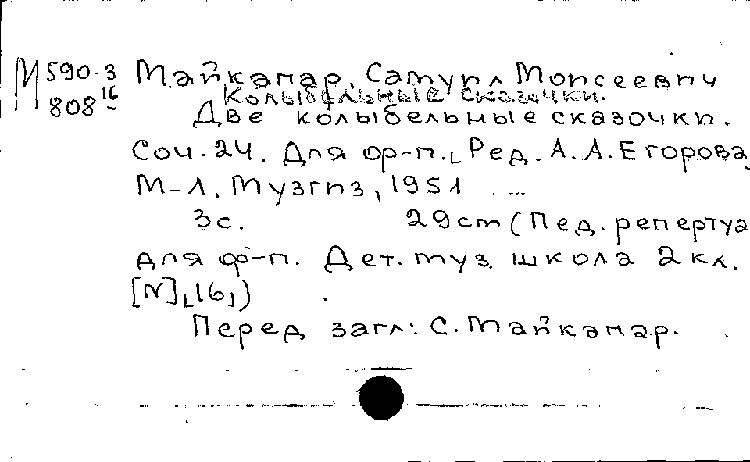 М 590-3 Майкапар, Самуил Моисеевич
808 16 Колыбельные сказочки.
Две колыбельные сказочки.
Соч. 24. Для ф-п., Ред. А. А. Егорова
М-Л, Музгиз, 1951
3с. 29cm (Пед. репертуа
для ф-п. Дет. муз. школа 2 кл.
[N], 161)
Перед загл: С. Майкапар.